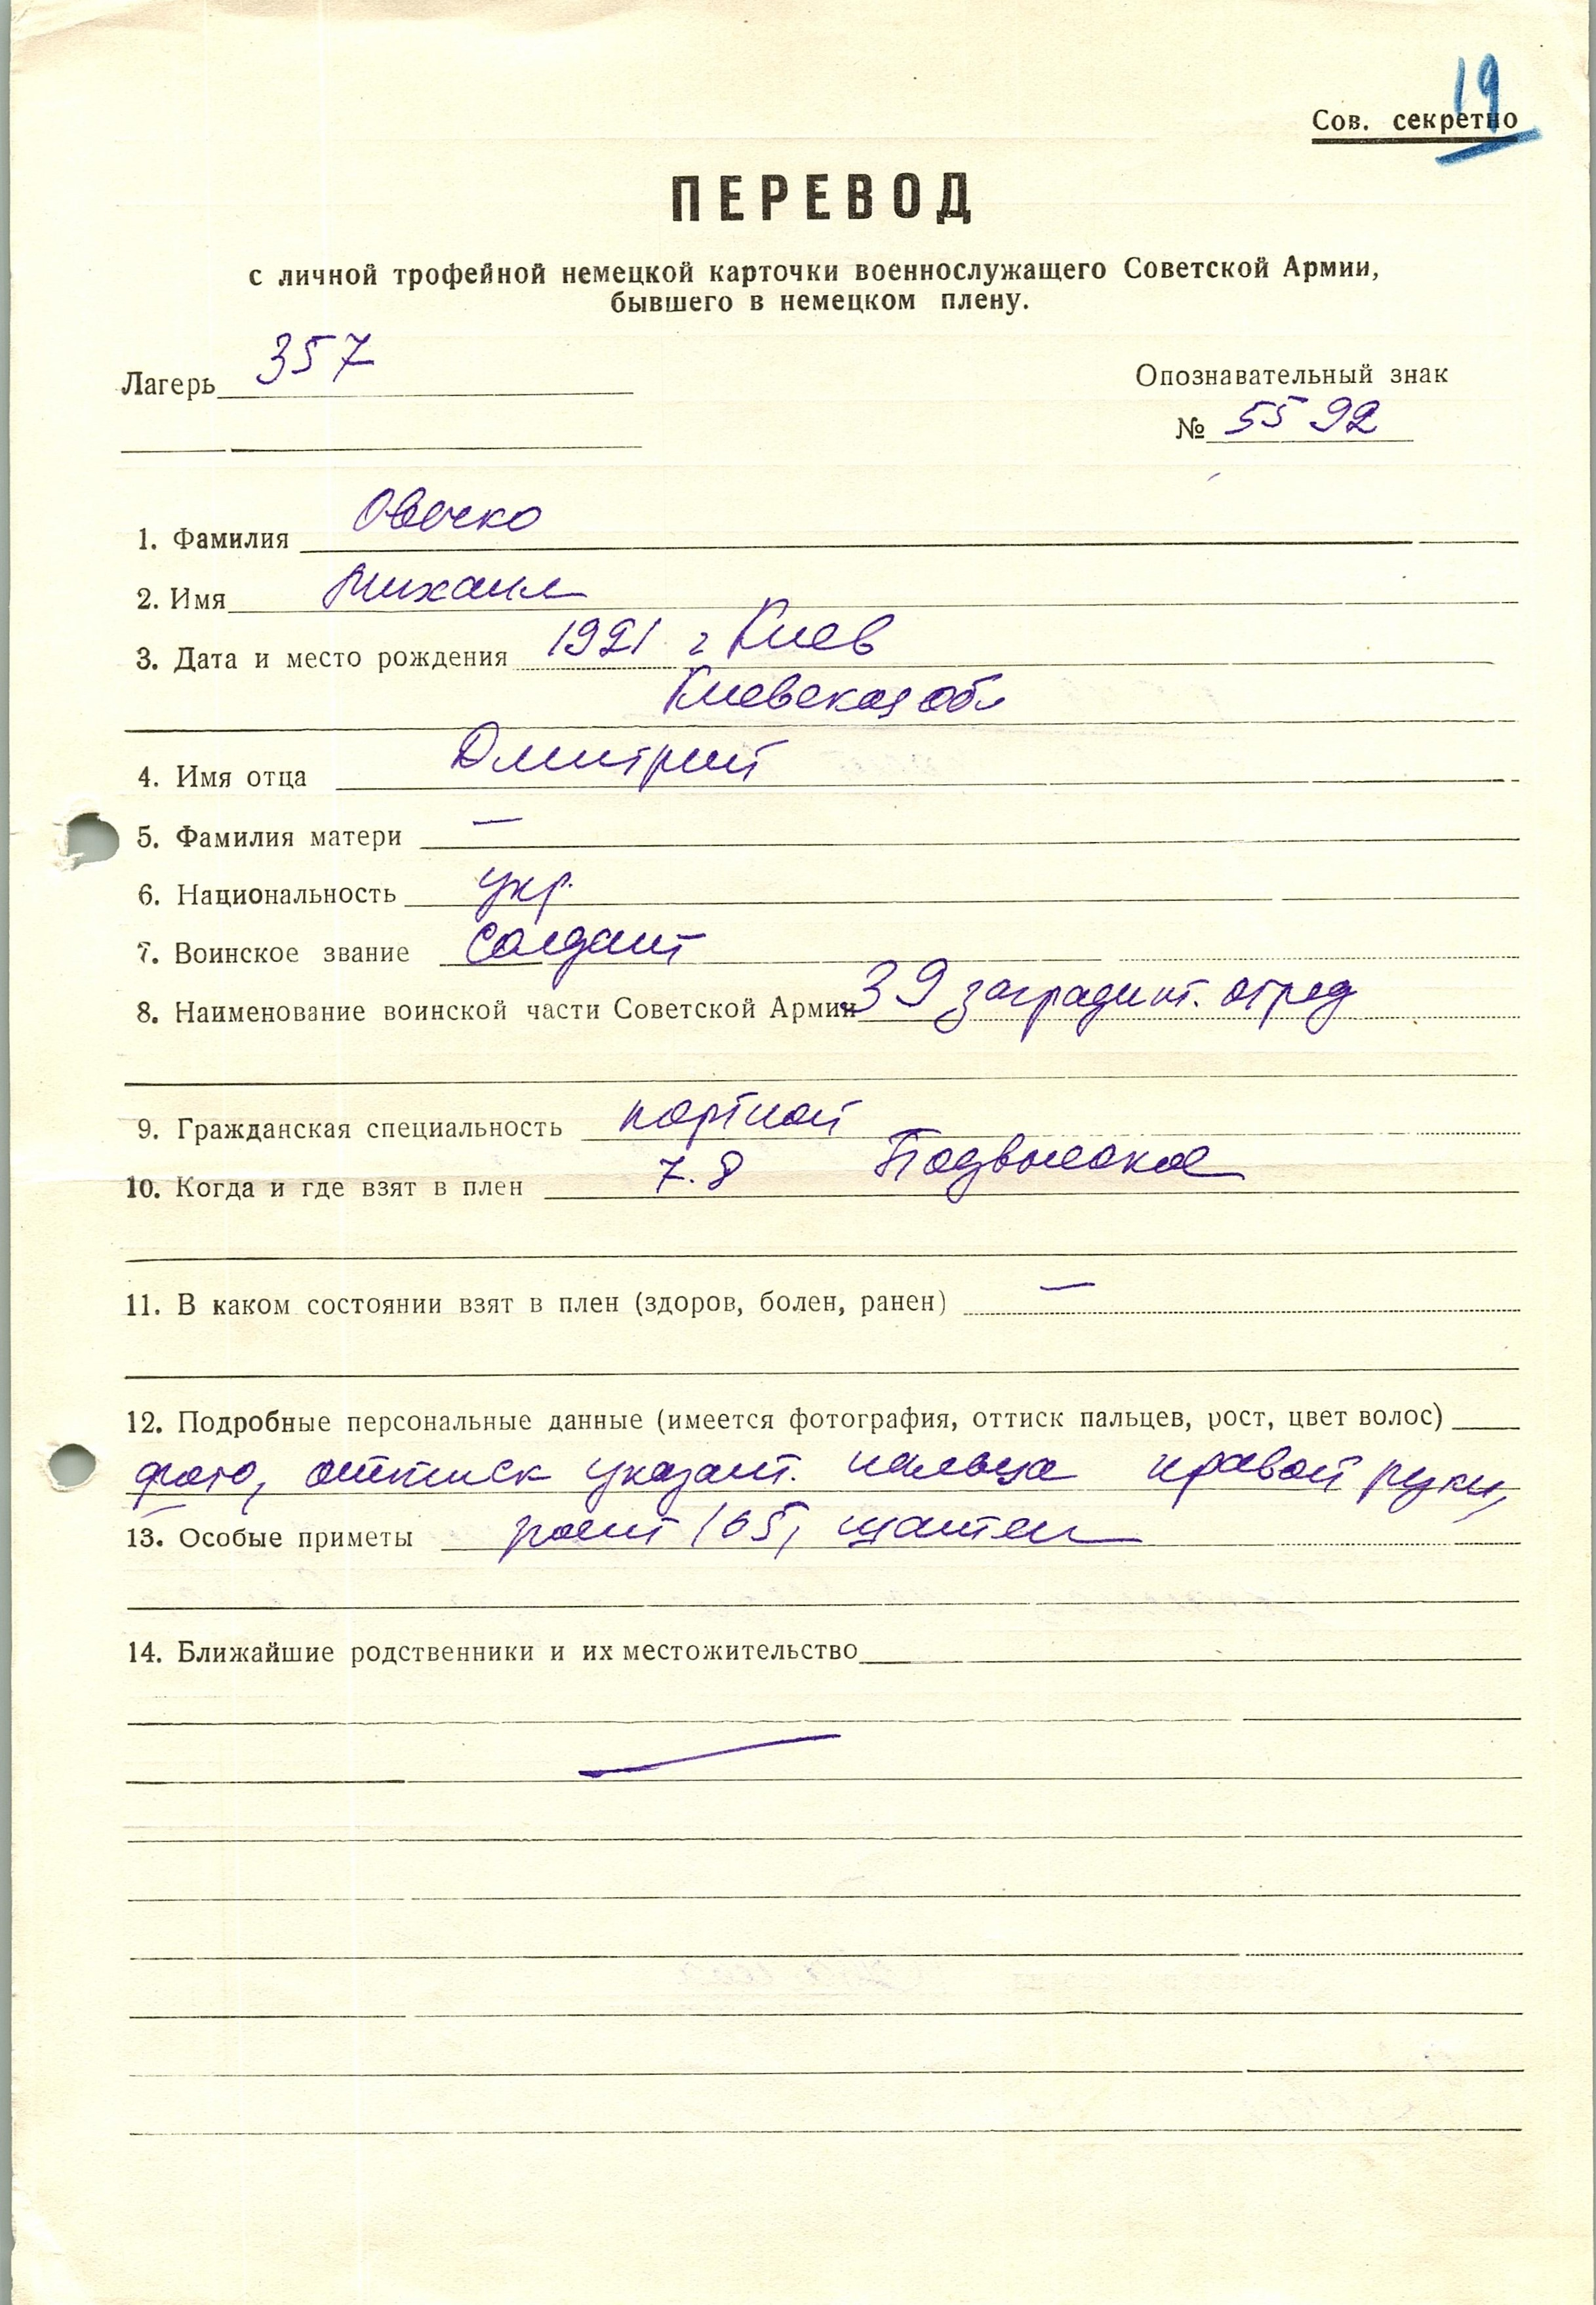 19
Сов. секретно
ПЕРЕВОД
с личной трофейной немецкой карточки военнослужащего Советской Армии,
бывшего в немецком плену.
Лагерь 357
Опознавательный знак
№ 5592
1. Фамилия Овечко
2. Имя Михаил
3. Дата и место рождения 1921 г Киев
Киевская обл
4. Имя отца Дмитрий
5. Фамилия матери —
6. Национальность укр.
7. Воинское звание солдат
8. Наименование воинской части Советской Армии 39 заградит. отряд
9. Гражданская специальность портной
10. Когда и где взят в плен 7.8 Подвысокое
11. В каком состоянии взят в плен (здоров, болен, ранен) —
12. Подробные персональные данные (имеется фотография, оттиск пальцев, рост, цвет волос)
фото, оттиск указат. пальца правой руки,
13. Особые приметы рост 165, шатен
14. Ближайшие родственники и их местожительство